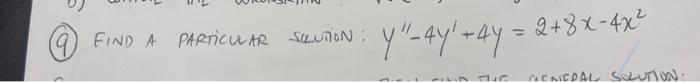 9 FIND A PARTICULAR SOLUTION: y''-4y'+4y = 2+8x-4x²
GENERAL SOLUTION.